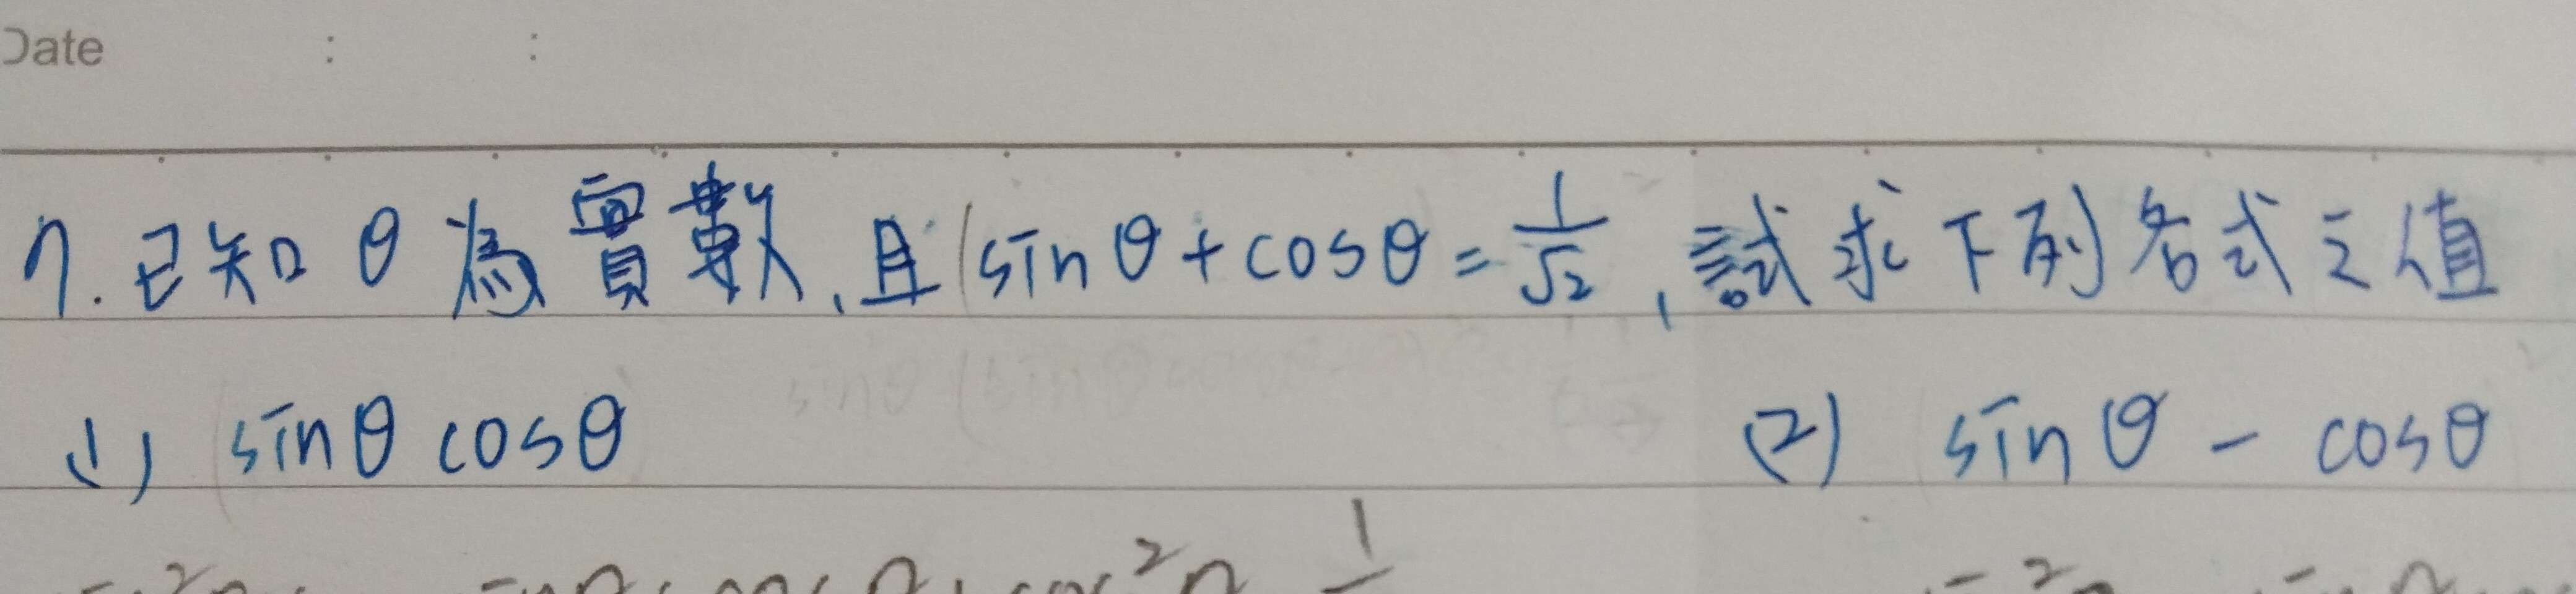 Date : :
7. 已知 θ 為實數,且 sinθ + cosθ = 1/√2 , 試求下列各式之值
(1) sinθ cosθ (2) sinθ - cosθ